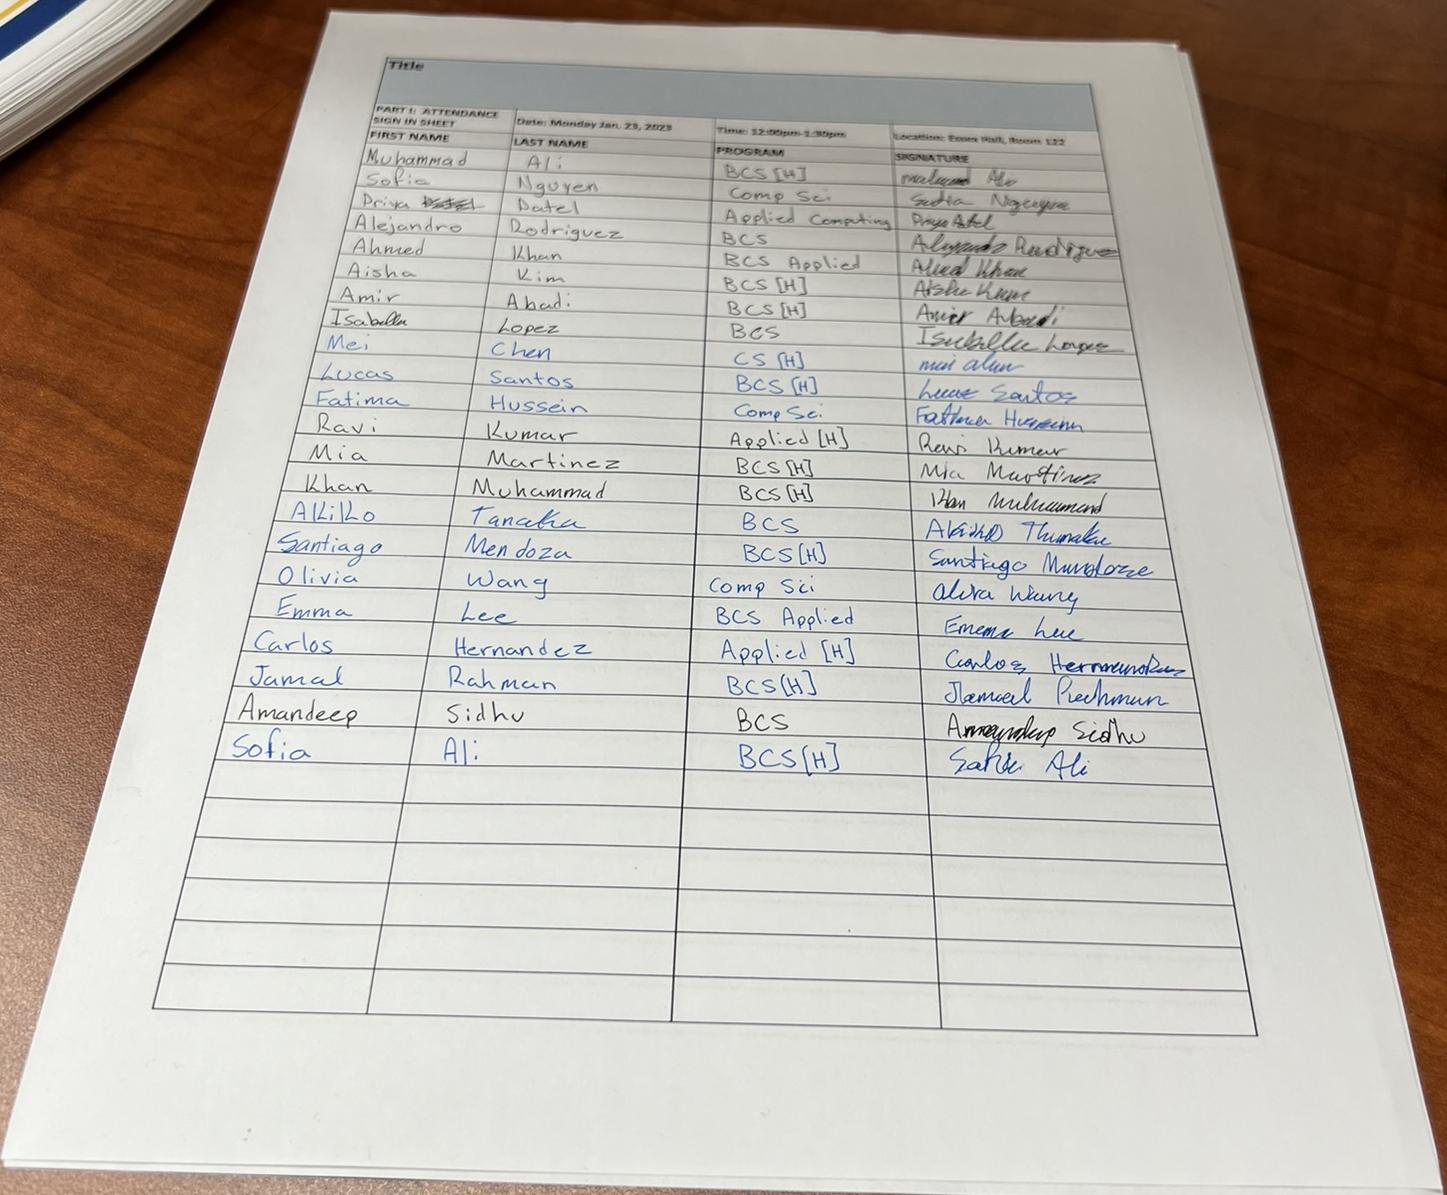 Title
PART I: ATTENDANCE SIGN IN SHEET Date: Monday Jan. 23, 2023 Time: 12:00pm-1:30pm Location: Essex Hall, Room 122
FIRST NAME LAST NAME PROGRAM SIGNATURE
Muhammad Ali BCS [H] Ali
Sofia Nguyen Comp Sci Sofia Nguyen
Priya Patel Applied Computing Priya Patel
Alejandro Rodriguez BCS Alejandro Rodriguez
Ahmed Khan BCS Applied Ahmed Khan
Aisha Kim BCS [H] Aisha Kim
Amir Abadi BCS [H] Amir Abadi
Isabella Lopez BCS Isabella Lopez
Mei Chen CS [H] mei chen
Lucas Santos BCS [H] Lucas Santos
Fatima Hussein Comp Sci Fatima Hussein
Ravi Kumar Applied [H] Ravi Kumar
Mia Martinez BCS [H] Mia Martinez
Khan Muhammad BCS [H] Khan Muhammad
Akiko Tanaka BCS Akiko Tanaka
Santiago Mendoza BCS[H] Santiago Mendoza
Olivia Wang Comp Sci Olivia Wang
Emma Lee BCS Applied Emma Lee
Carlos Hernandez Applied [H] Carlos Hernandez
Jamal Rahman BCS[H] Jamal Rahman
Amandeep Sidhu BCS Amandeep Sidhu
Sofia Ali BCS[H] Sofia Ali